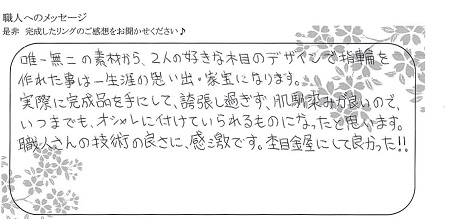 職人へのメッセージ
是非 完成したリングのご感想をお聞かせください♪
唯一無二の素材から、2人の好きな木目のデザインで指輪を
作れた事は一生涯の思い出・家宝になります。
実際に完成品を手にして、誇張し過ぎず、肌馴染みが良いので、
いつまでも、オシャレに付けていられるものになったと思います。
職人さんの技術の良さに、感激です。杢目金屋にして良かった!!